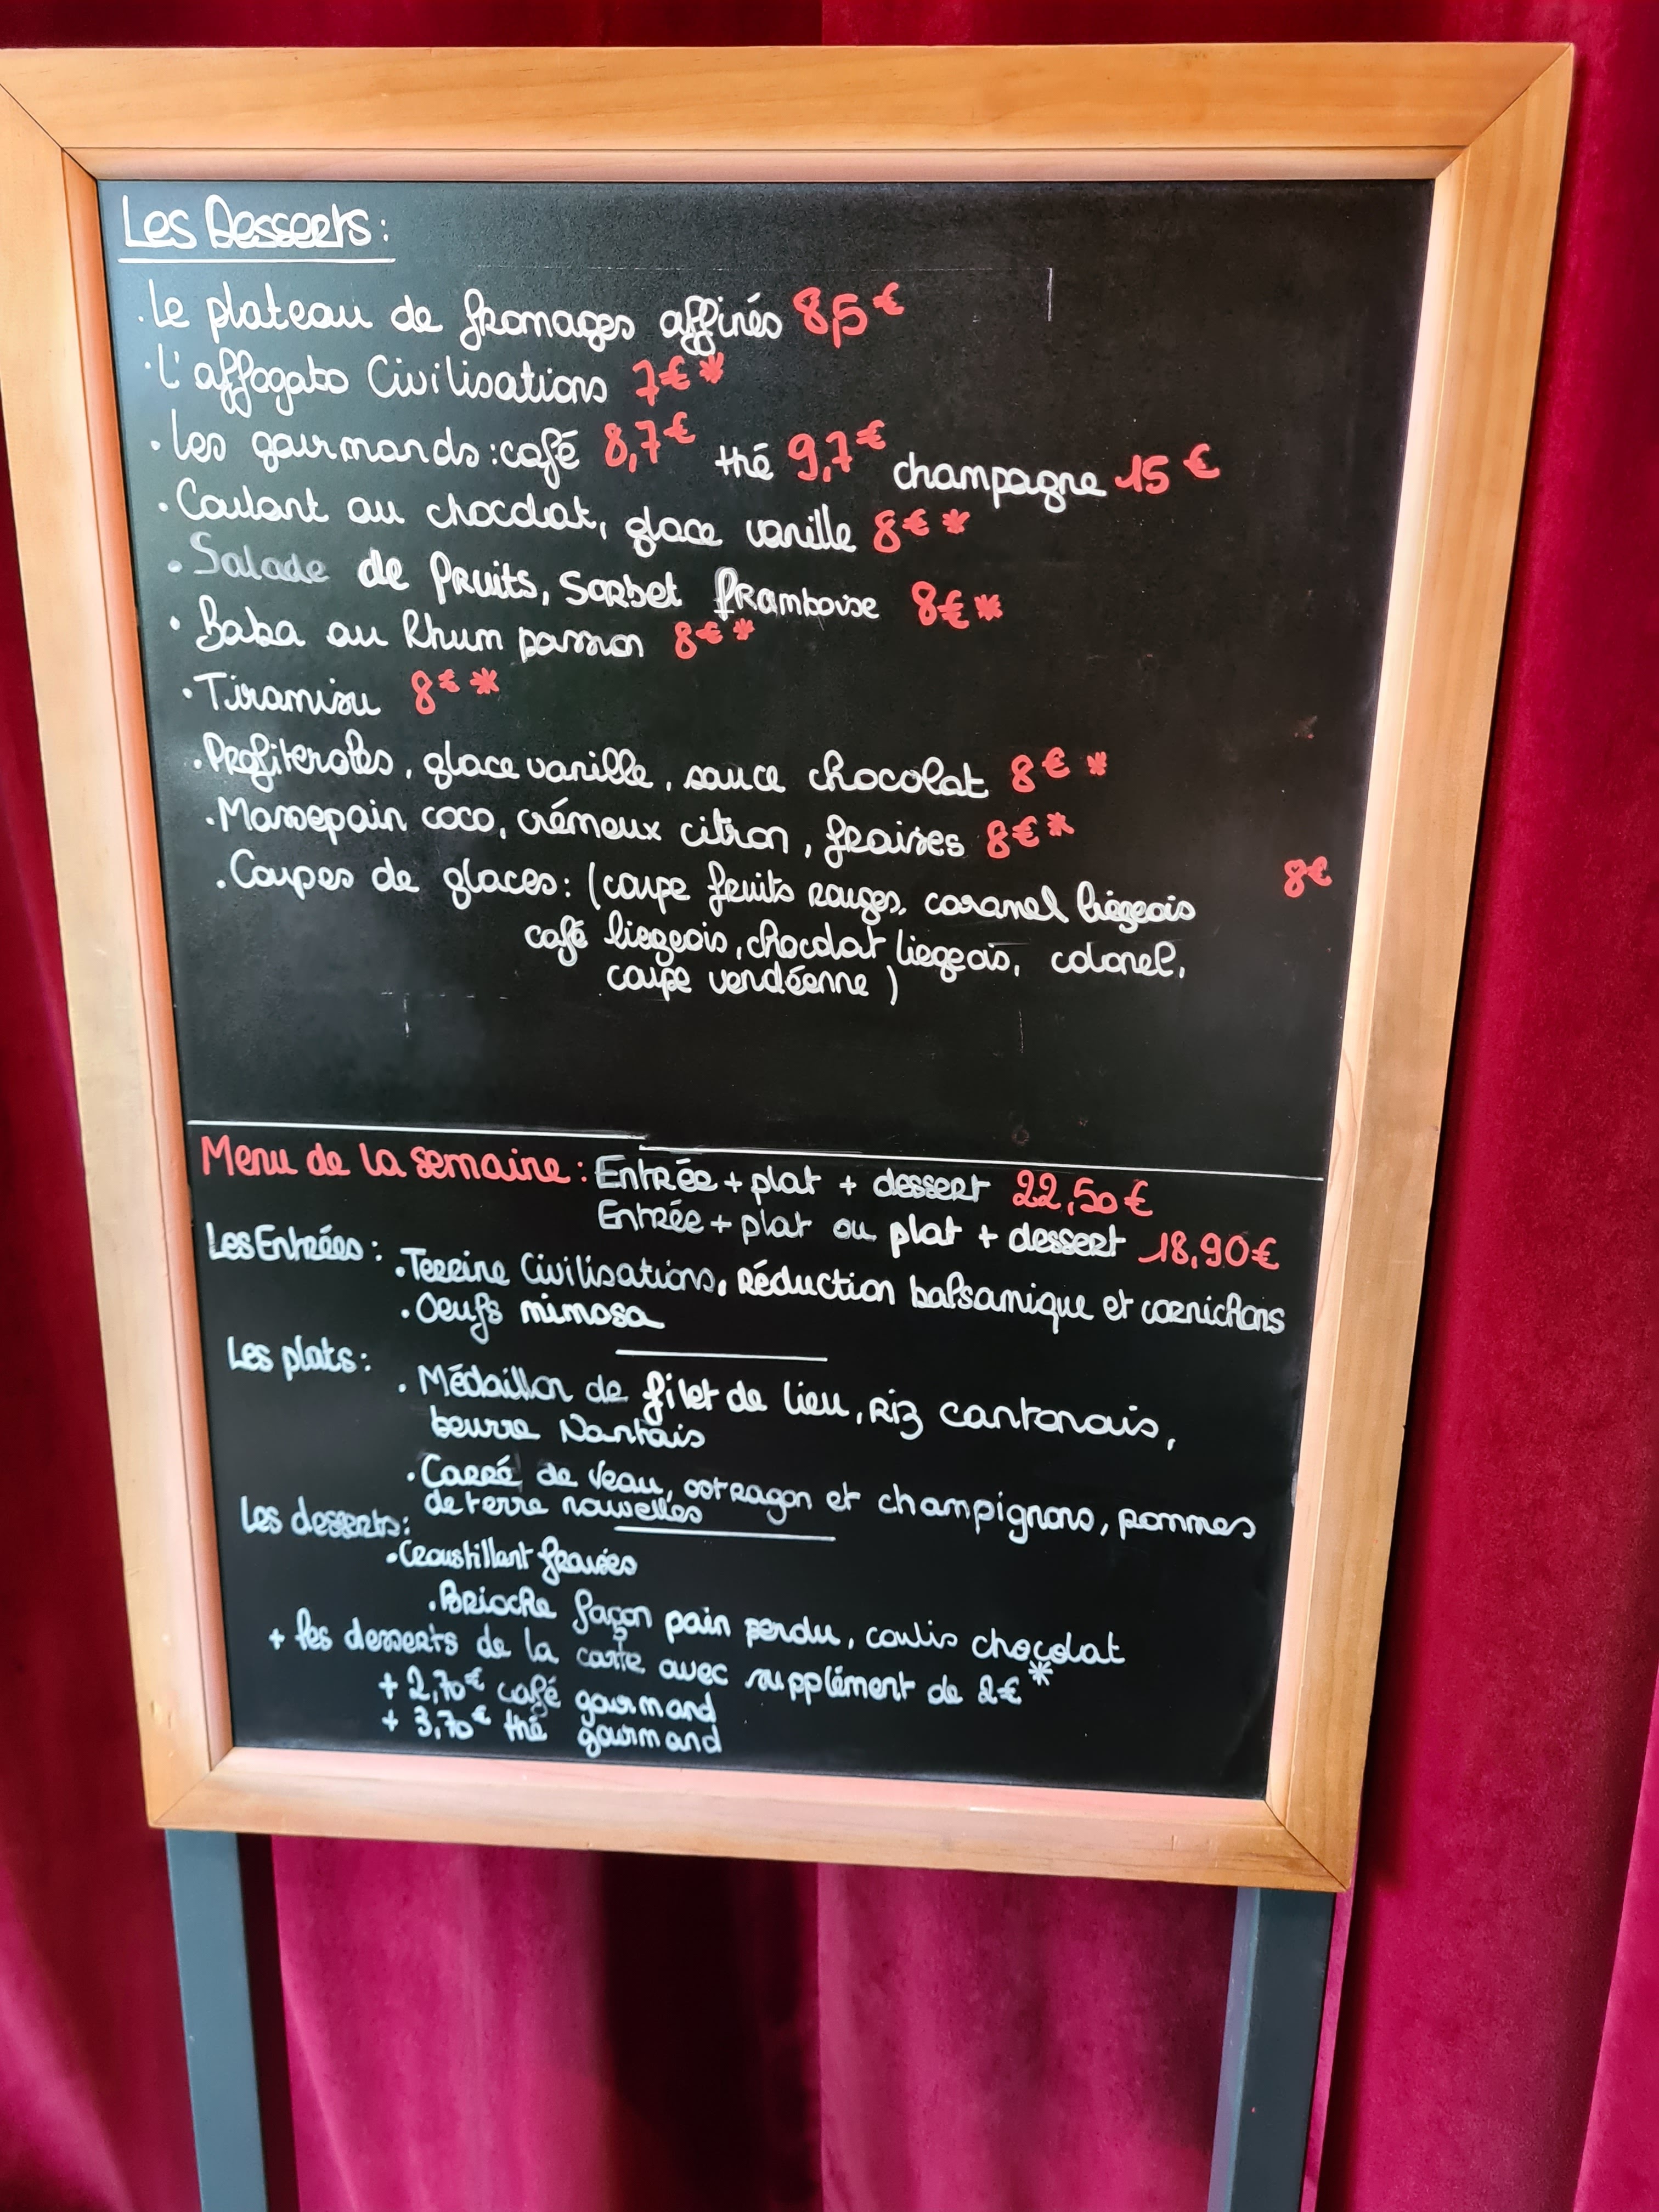 Les Desserts:
. Le plateau de fromages affinés 8,5€
. L'affogato Civilisations 7€*
. Les gourmands: café 8,7€ thé 9,7€ champagne 15€
. Coulant au chocolat, glace vanille 8€*
. Salade de fruits, sorbet framboise 8€*
. Baba au Rhum passion 8€*
. Tiramisu 8€*
. Profiteroles, glace vanille, sauce chocolat 8€*
. Massepain coco, crémeux citron, fraises 8€*
. Coupes de glaces: (coupe fruits rouges, caramel liégeois 8€
café liegeois, chocolat liegeois, colonel,
coupe vendéenne)
Menu de la semaine: Entrée + plat + dessert 22,50€
Entrée + plat ou plat + dessert 18,90€
Les Entrées: . Terrine Civilisations, Réduction balsamique et cornichons
. Oeufs mimosa
Les plats:
. Médaillon de filet de lieu, riz cantonais,
beurre Nantais
. Carré de veau, estragon et champignons, pommes
de terre nouvelles
Les desserts:
. Croustillant fraises
. Brioche façon pain perdu, coulis chocolat
+ les desserts de la carte avec supplément de 2€*
+ 2,70€ café gourmand
+ 3,70€ thé gourmand